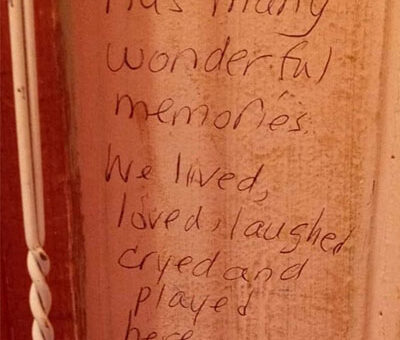 has many
wonderful
memories.
We lived,
loved, laughed
cryed and
played
here